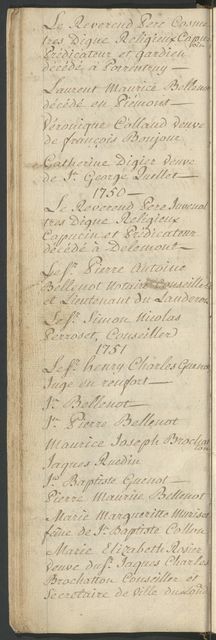 Le Reverend Pere Cosme
tres Digne Religieux Capucin
Prédicateur et gardien
décédé à Porrentruy
Laurent Maurice Bellenot
décédé en Piémont
Véronique Colland veuve
de françois Bonjour
Catherine Digier veuve
de Jn George Quellet
1750
Le Reverend Pere Juvenal
tres Digne Religieux
Capucin et Prédicateur
décédé à Delemont
Le Sr. Pierre Antoine
Bellenot Notaire Conseiller
et Lieutenant du Landeron
Le Sr. Simon Nicolas
Perroset, Conseiller
1751
Le Sr. henry Charles Guenot
Juge en renfort
Jn Bellenot
Jn Pierre Bellenot
Maurice Joseph Brochaton
Jaques Ruedin
Jn Baptiste Guenot
Pierre Maurice Bellenot
Marie Margueritte Muriset
feme de Jn Baptiste
Marie Elizabeth
veuve du Sr. Jaques Charles
Brochatton Conseiller et
Secretaire de Ville du